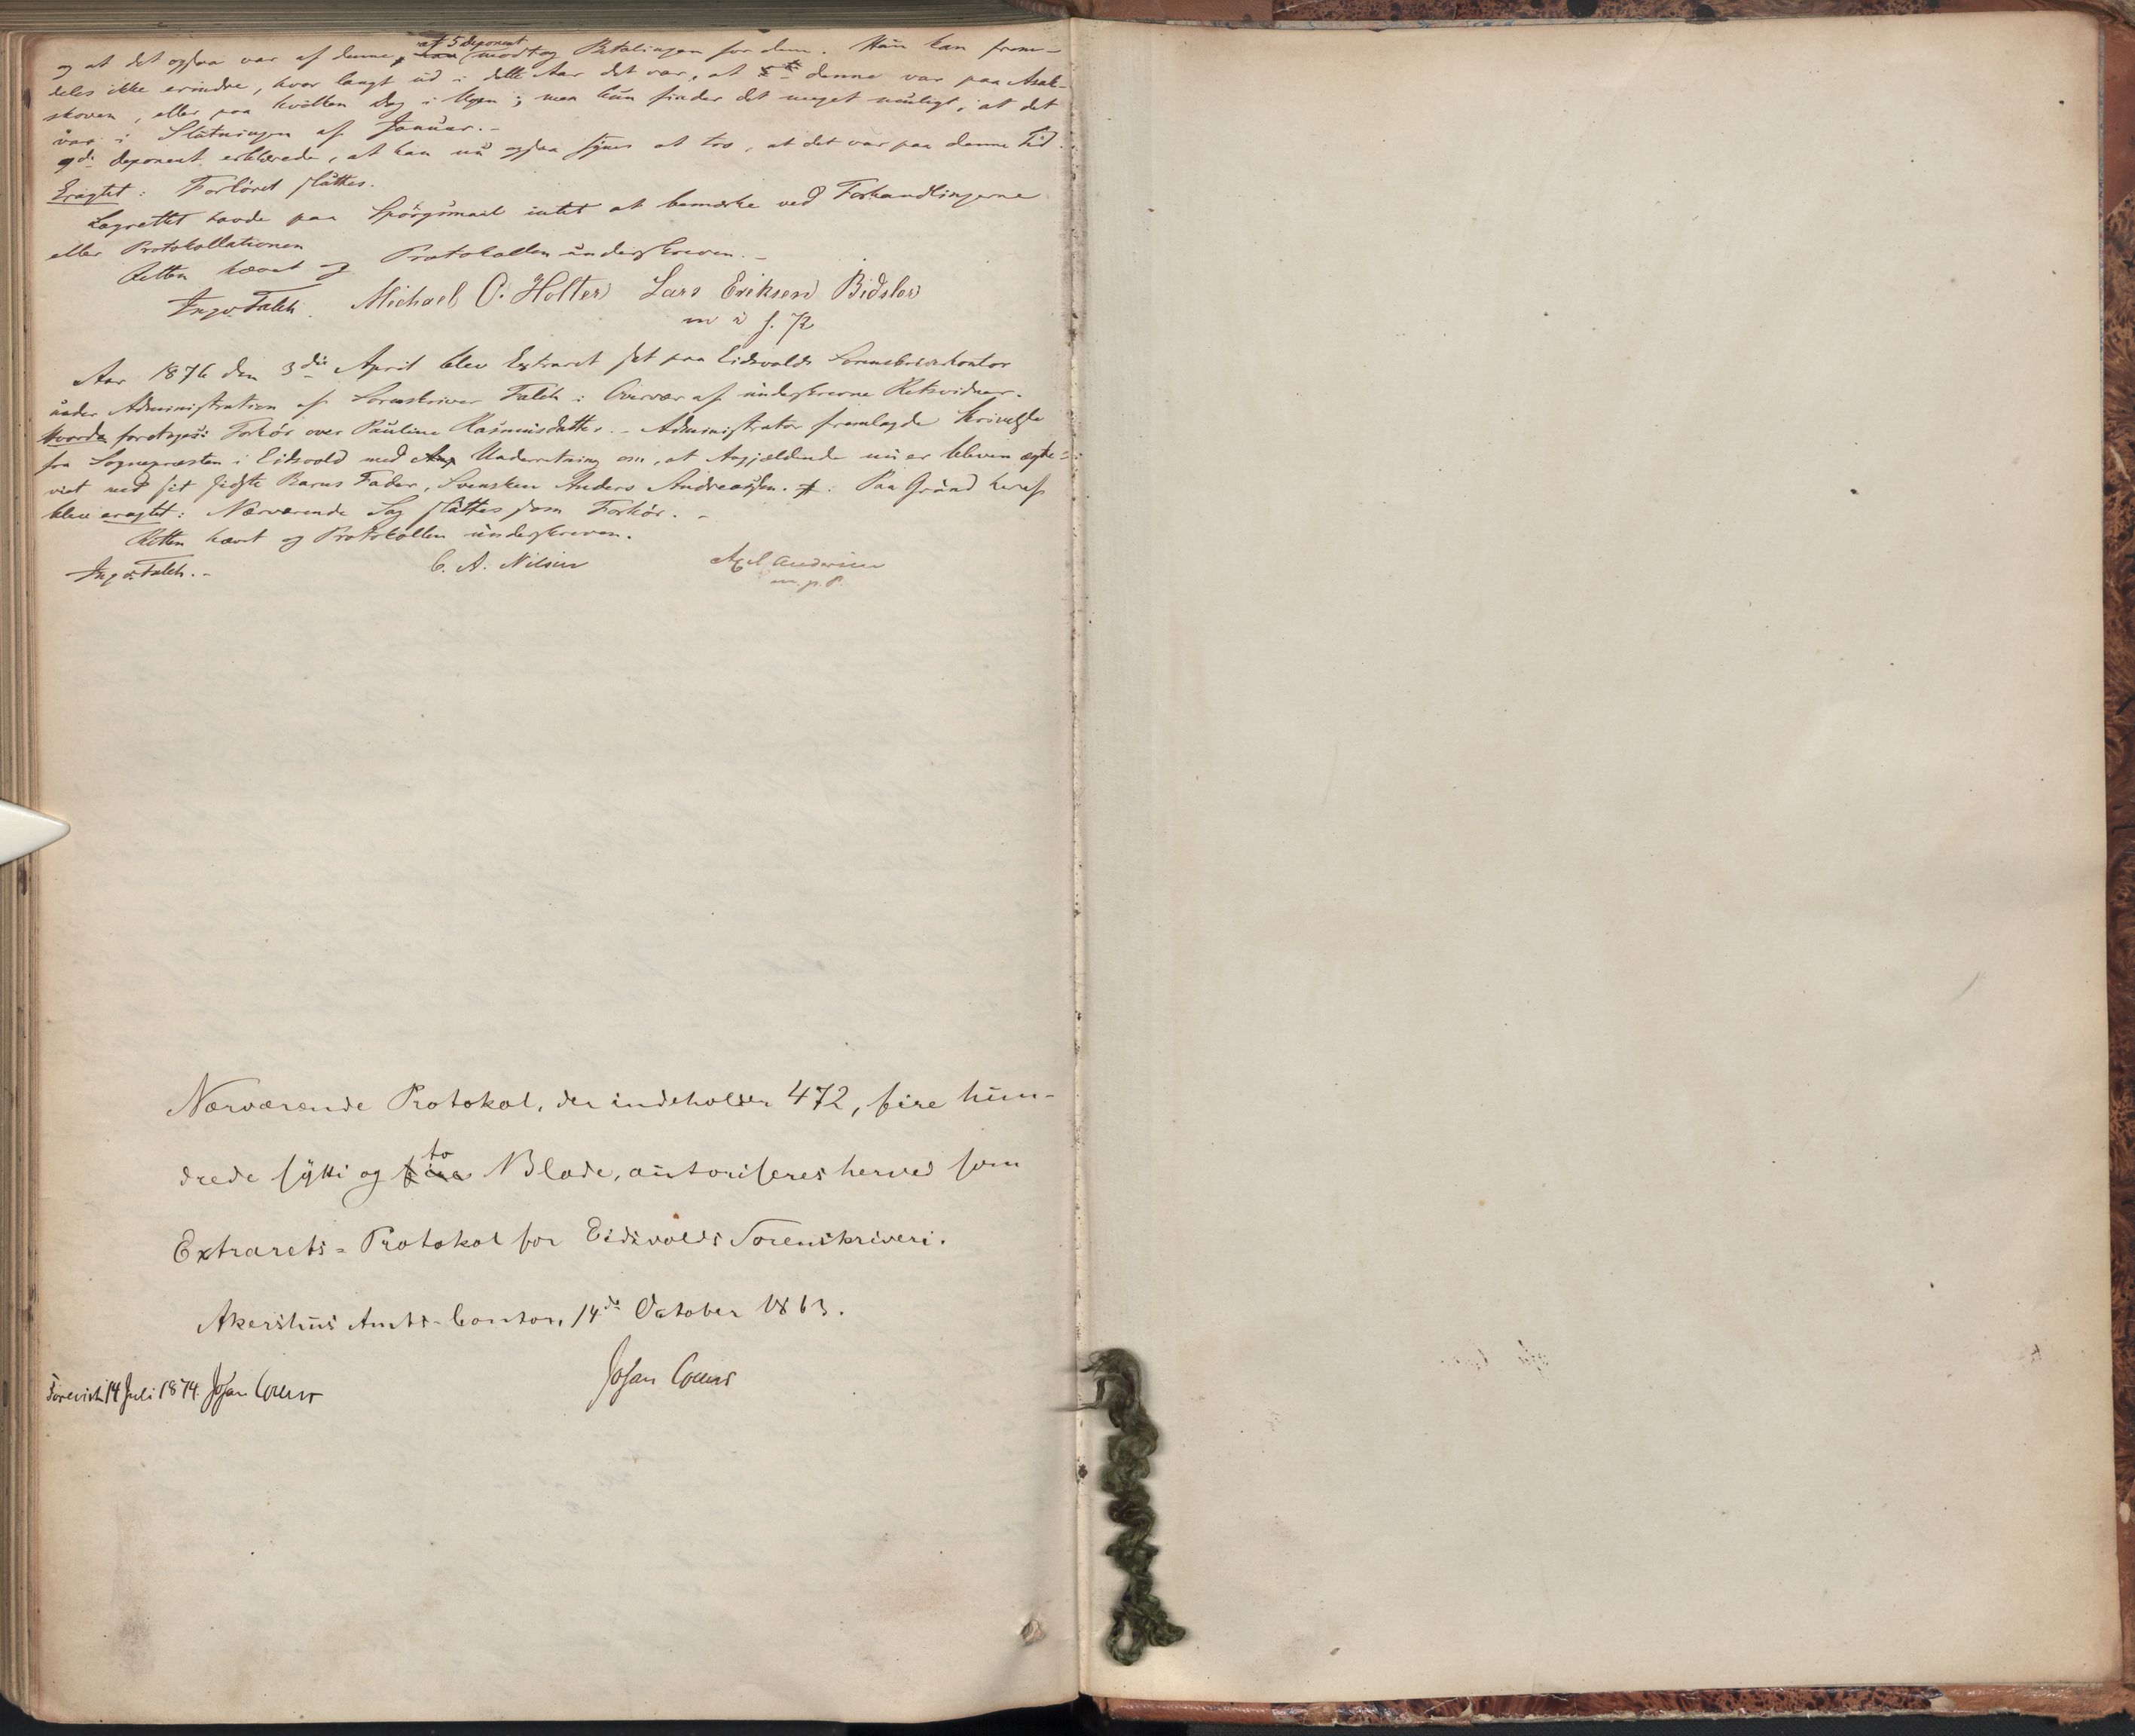 og at det ogsaa var af denne, at 5 deponent modtog Betalingen for dem. Han kan frem-
deles ikke erindre, hvor langt ud i dette Aar det var, at 5te denne var paa Asak-
skoven, eller paa hvilken Dag i Ugen; men hun finder det meget muligt, at det
var i Slutningen af Januar.-
9de deponent erklærede, at han nu ogsaa synes at tro, at det var paa denne Tid.
Eragtet: Forhöret sluttes.
Lagrettet havde paa Spörgsmaal intet at bemærke ved Forhandlingerne
eller Protokollationen
Retten hævet og Protokollen underskreven.-
Ingv. Falch. Michael O. Holter Lars Eriksen Bidsler
Aar 1876 den 3die April blev Extraret sat paa Eidsvolds Sorenskriverkontor
under Administration af Sorenskriver Falch i Overvær af underskrevne Retsvidner.
Hvorda foretoges: Forhör over Pauline Rasmusdatter.- Administrator fremlagde Skrivelse
fra Sognepræsten i Eidsvold med Underretning om, at Angjældende nu er bleven ægte-
viet med sit sidste Barns Fader, Svensken Anders Andreassen. Paa Grund heraf
blev eragtet: Nærværende Sag sluttes som Forhör.-
Retten hævet og Protokollen underskreven.
Ingv. Falch.- C. A. Nilsen Axel Andersen
m. p. P.
Nærværende Protokol, der indeholder 472, fire hun-
drede sytti og to Blade, autoriseres herved som
Extrarets-Protokol for Eidsvolds Sorenskriveri.
Akershus Amts-Contor, 14de October 1863.
Johan Collett
Forevist 14 Juli 1874. Johan Collett